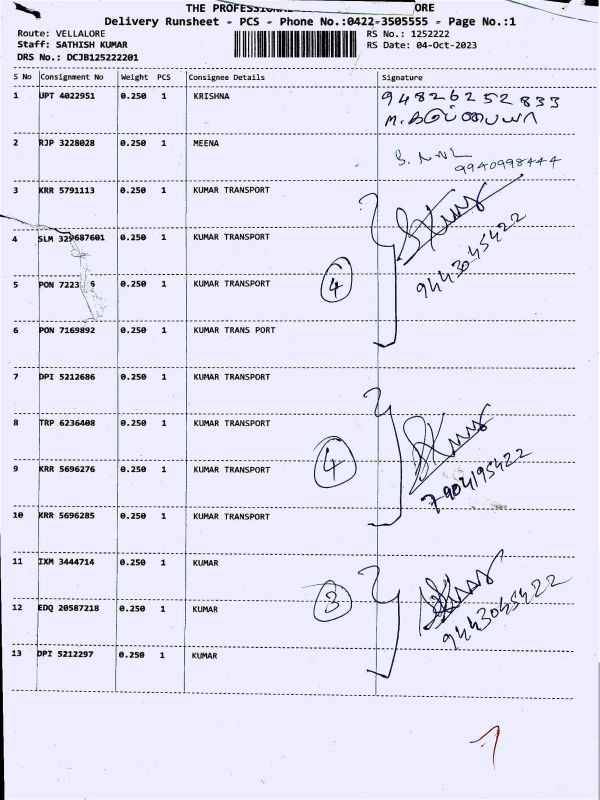 THE PROFESSIONAL ORE
Delivery Runsheet - PCS - Phone No.:0422-3505555 - Page No.:1
Route: VELLALORE RS No.: 1252222
Staff: SATHISH KUMAR RS Date: 04-Oct-2023
DRS No.: DCJB125222201
S No Consignment No Weight PCS Consignee Details Signature
1 UPT 4022951 0.250 1 KRISHNA 94826252833
2 RJP 3228028 0.250 1 MEENA 9940998444
3 KRR 5791113 0.250 1 KUMAR TRANSPORT
4 SLM 329687601 0.250 1 KUMAR TRANSPORT
9443045422
5 PON 7223 6 0.250 1 KUMAR TRANSPORT
4
6 PON 7169892 0.250 1 KUMAR TRANS PORT
7 DPI 5212686 0.250 1 KUMAR TRANSPORT
8 TRP 6236408 0.250 1 KUMAR TRANSPORT
9 KRR 5696276 0.250 1 KUMAR TRANSPORT
4
7904195422
10 KRR 5696285 0.250 1 KUMAR TRANSPORT
11 IXM 3444714 0.250 1 KUMAR
12 EDQ 20587218 0.250 1 KUMAR
3
9443045422
13 DPI 5212297 0.250 1 KUMAR